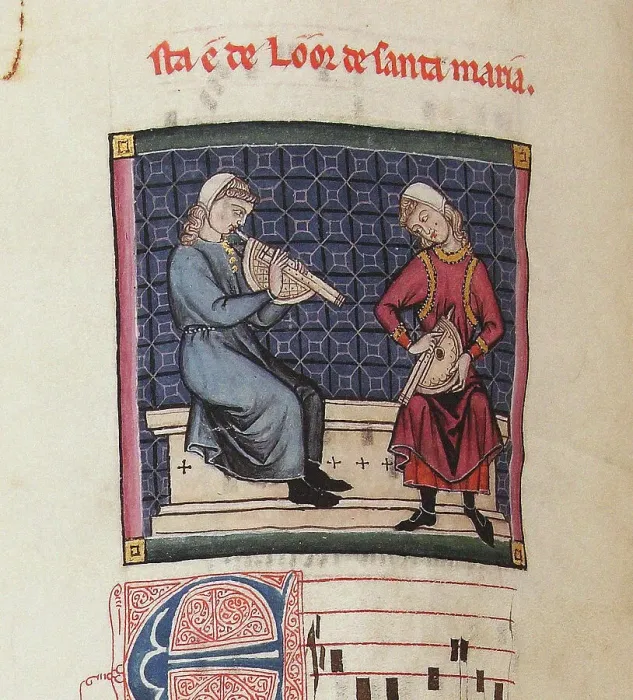 sta é de Lóór de santa maria.
E